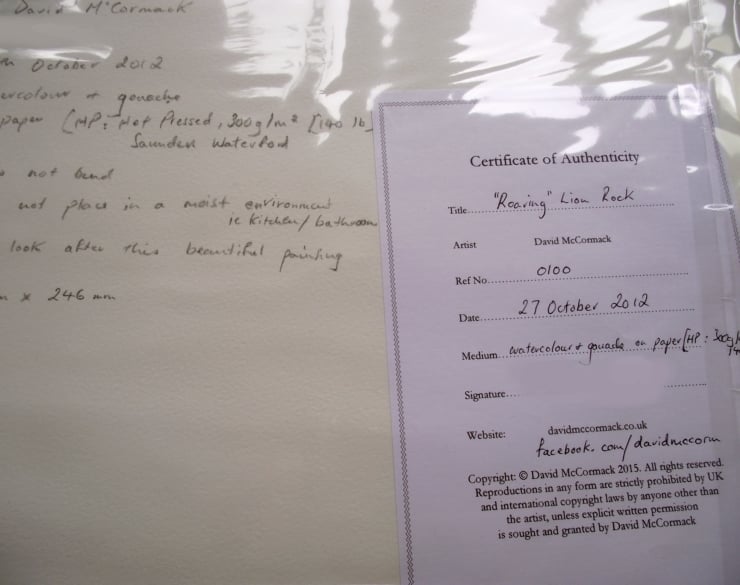 David McCormack
October 2012
gouache
paper [HP: Hot Pressed, 300g/m² [140 lb]
Saunders Waterford
not bend
not place in a moist environment
ie kitchen/bathroom
look after this beautiful painting
x 246 mm
Certificate of Authenticity
Title "Roaring" Lion Rock
Artist David McCormack
Ref No. 0100
Date 27 October 2012
Medium watercolour + gouache on paper [HP: 300g/
Signature
Website: davidmccormack.co.uk
facebook.com/davidmccorm
Copyright: © David McCormack 2015. All rights reserved.
Reproductions in any form are strictly prohibited by UK
and international copyright laws by anyone other than
the artist, unless explicit written permission
is sought and granted by David McCormack